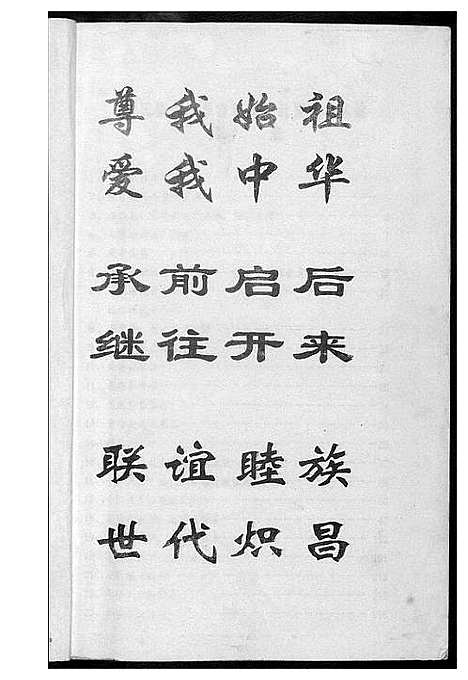 尊我始祖
爱我中华
承前启后
继往开来
联谊睦族
世代炽昌